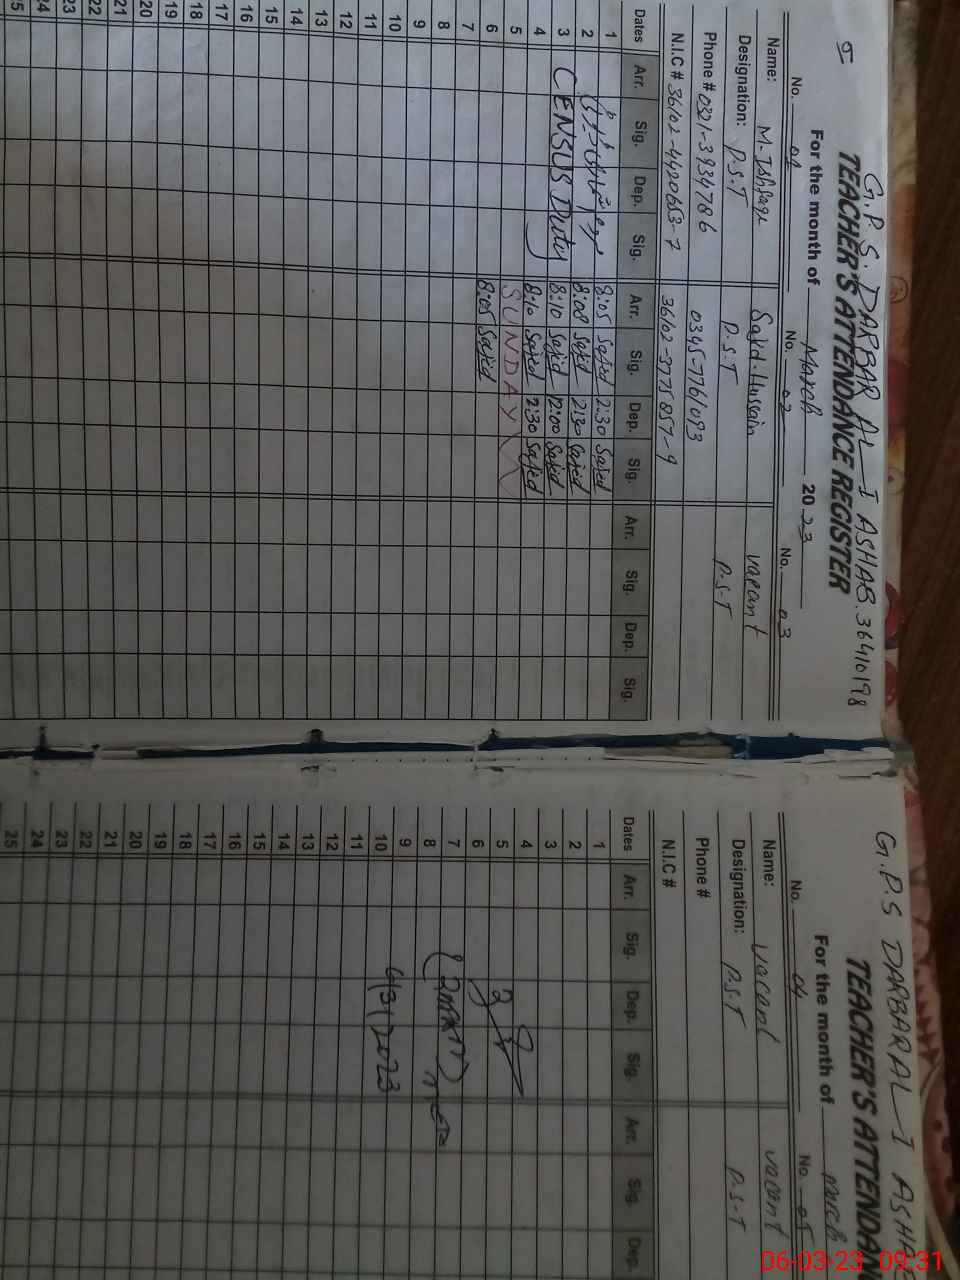 G.P.S. DARBAR AL I ASHAB. 36410198
TEACHER'S ATTENDANCE REGISTER
For the month of March 2023
No. 01 No. 02 No. 03
Name: M. Ishfaq Sajid Hussain vacant
Designation: P.S.T P.S.T P.S.T
Phone # 0321-3934786 0345-7761093
N.I.C # 36102-4420653-7 36102-3775857-9
Dates Arr. Sig. Dep. Sig. Arr. Sig. Dep. Sig. Arr. Sig. Dep. Sig.
1 8:05 Sajed 2:30 Sajed
2 8:08 Sajed 2:30 Sajed
3 CENSUS Duty 8:10 Sajed 12:00 Sajed
4 8:10 Sajed 2:30 Sajed
5 SUNDAY
6 8:05 Sajed
7
8
9
10
11
12
13
14
15
16
17
18
19
20
21
22
23
24
G.P.S DARBAR AL I ASHA
TEACHER'S ATTENDA
For the month of March
No. 04 No. 05
Name: Vacant vacant
Designation: P.S.T P.S.T
Phone #
N.I.C #
Dates Arr. Sig. Dep. Sig. Arr. Sig. Dep.
1
2
3
4
5
6
7
8
9
10 6/3/2023
11
12
13
14
15
16
17
18
19
20
21
22
23
24
25
06-03-23 09:31